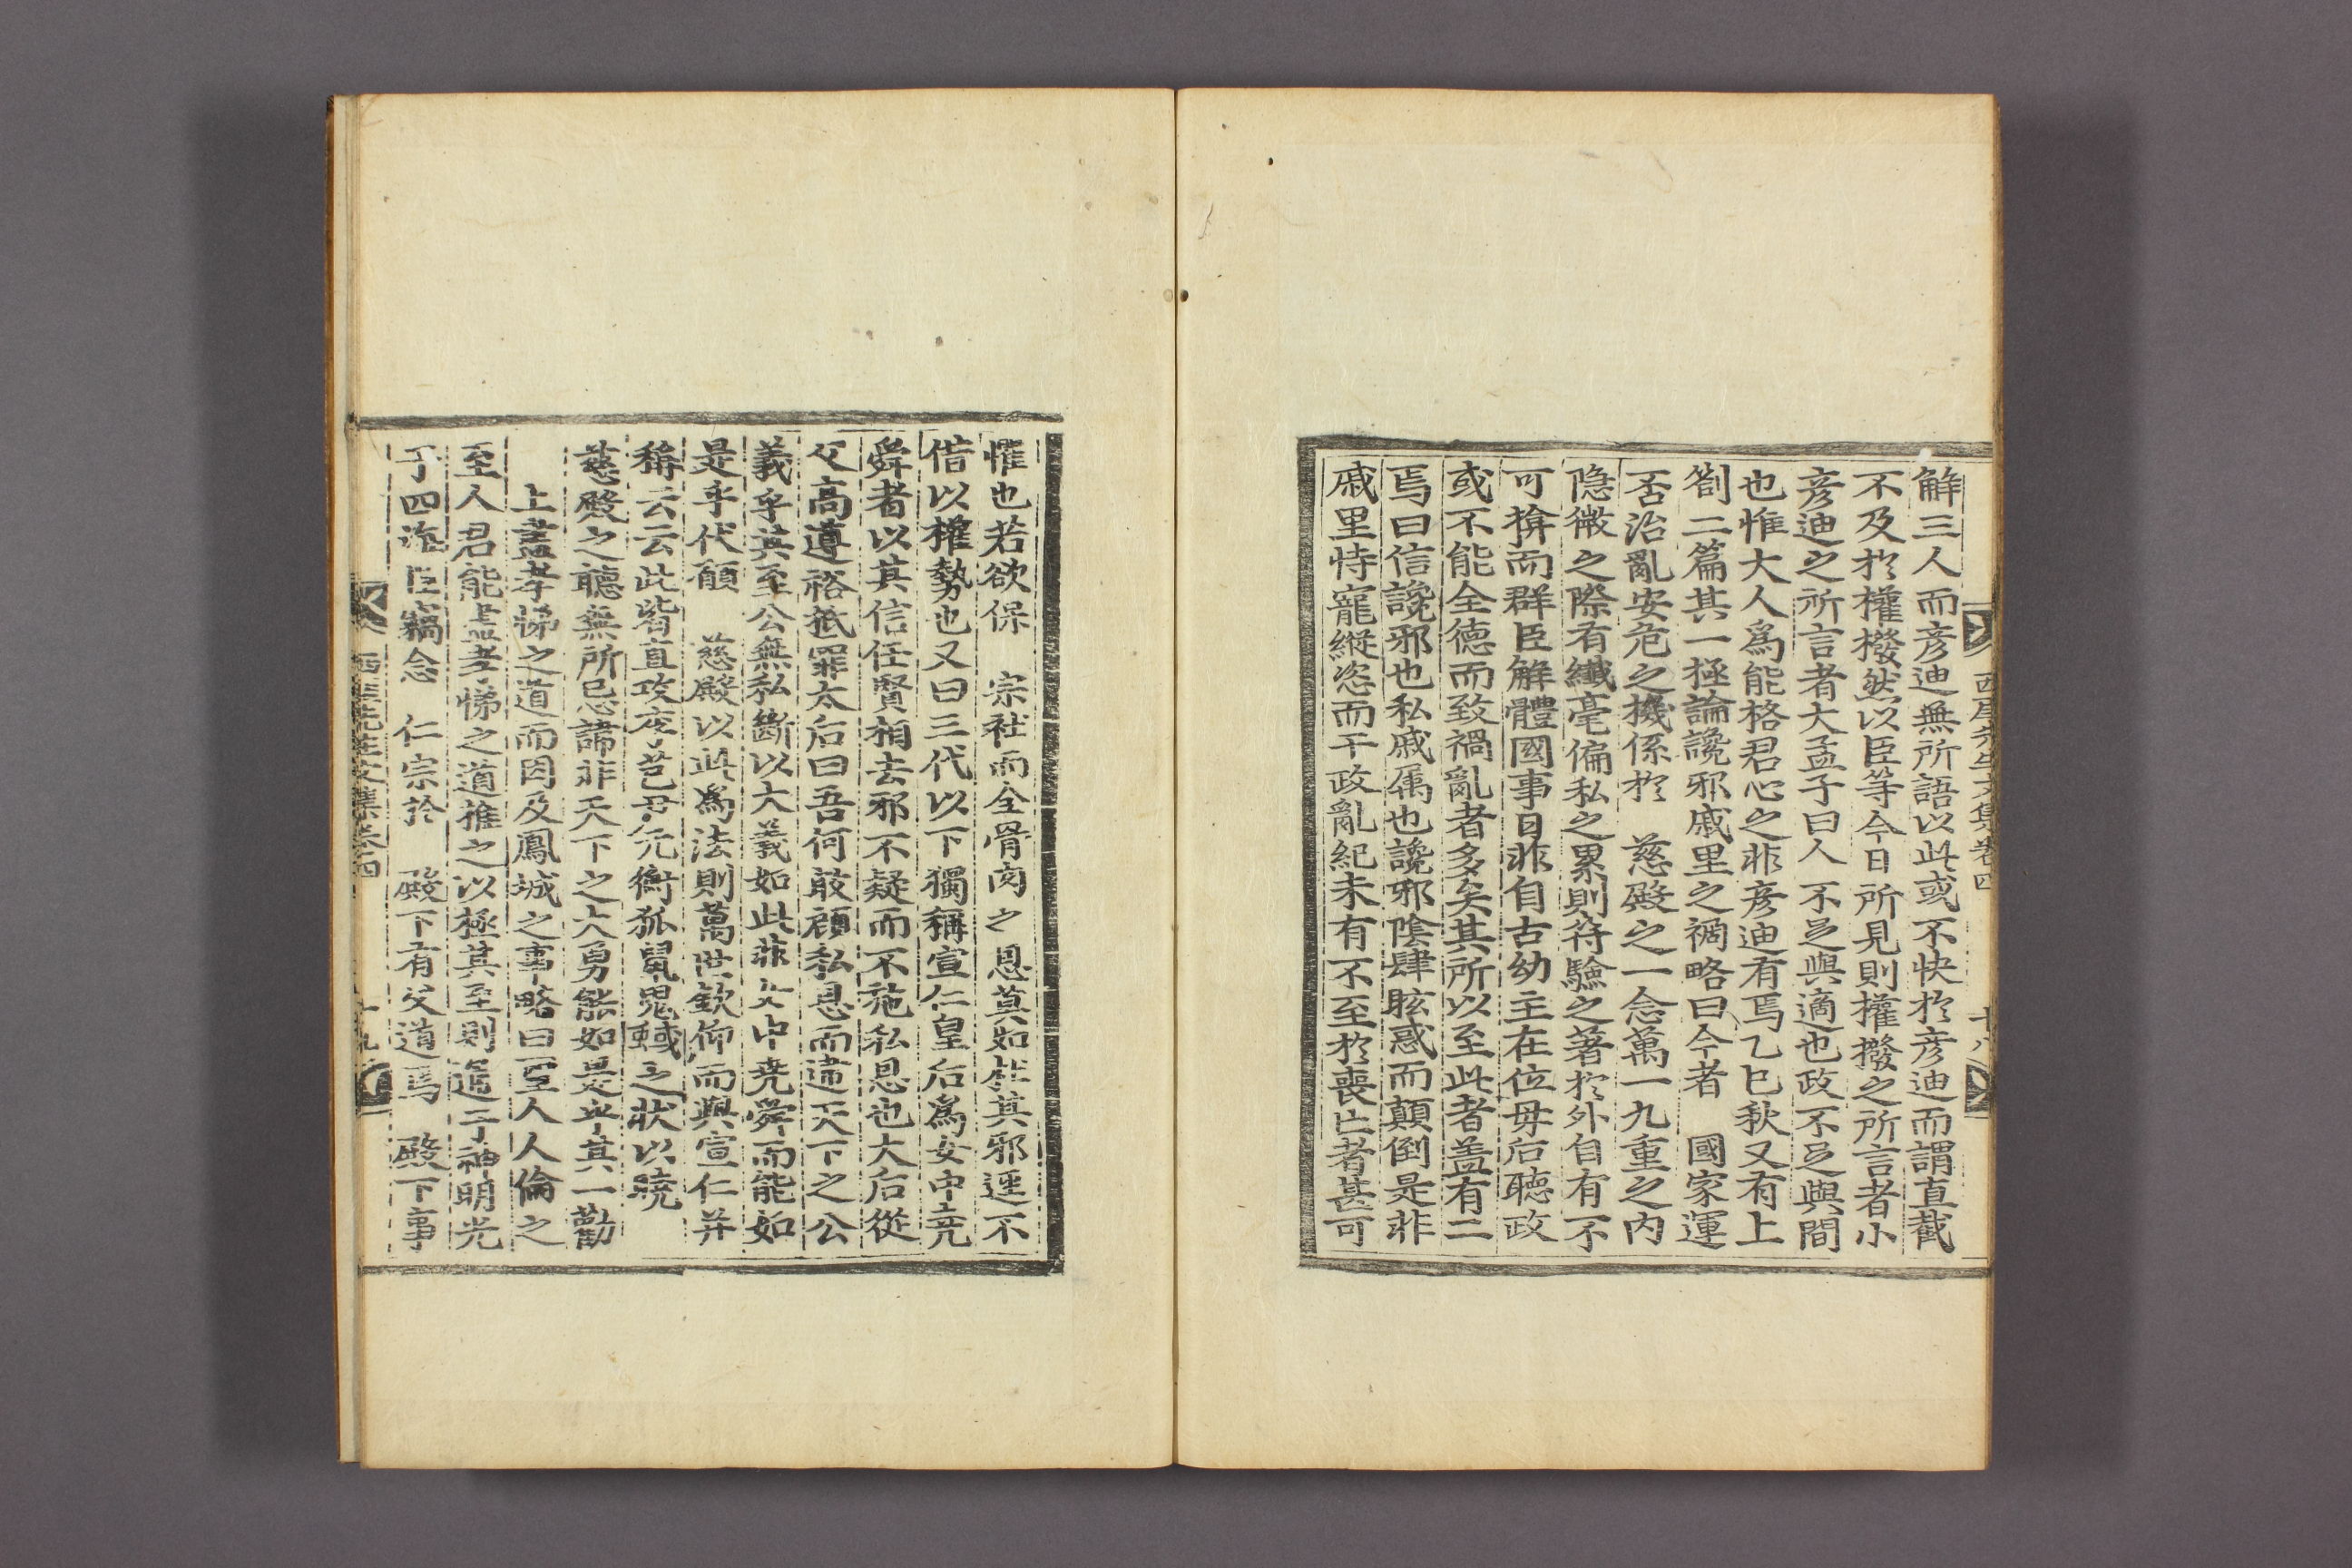 西厓先生文集卷四 十八
解三人而彦迪無所語以此或不快於彦迪而謂直截
不及於權撥然以臣等今日所見則權撥之所言者小
彦迪之所言者大孟子曰人不足與適也政不足與間
也惟大人爲能格君心之非彦迪有焉乙巳秋又有上
劄二篇其一極論讒邪戚里之禍略曰今者 國家運
否治亂安危之機係於 慈殿之一念萬一九重之内
隐微之際有纎毫偏私之累則符驗之著於外自有不
可揜而群臣解體國事日非自古幼主在位毋后聴政
或不能全德而致禍亂者多矣其所以至此者盖有二
焉曰信讒邪也私戚属也讒邪陰肆眩惑而顛倒是非
戚里恃寵縱恣而干政亂紀未有不至於喪亡者甚可
惟也若欲保 宗社而全骨肉之恩莫如杜其邪逕不
借以權勢也又曰三代以下獨稱宣仁皇后爲女中尭
舜者以其信任賢相去邪不疑而不施私恩也大后從
父高遵裕抵罪太后曰吾何敢顧私恩而違天下之公
義乎其至公無私斷以大義如此非女中尭舜而能如
是乎伏願 慈殿以此爲法則萬世欽仰而與宣仁并
稱云云此皆直攻安芑尹元衡狐鼠鬼蜮之状以曉
慈殿之聽無所忌諱非天下之大勇能如是乎其一勸
上盡孝悌之道而因及鳳城之事略曰聖人人倫之
至人君能盡孝悌之道推之以極其至則通于神明光
于四海臣竊念 仁宗於 殿下有父道焉 殿下事
西厓先生文集卷四 十九